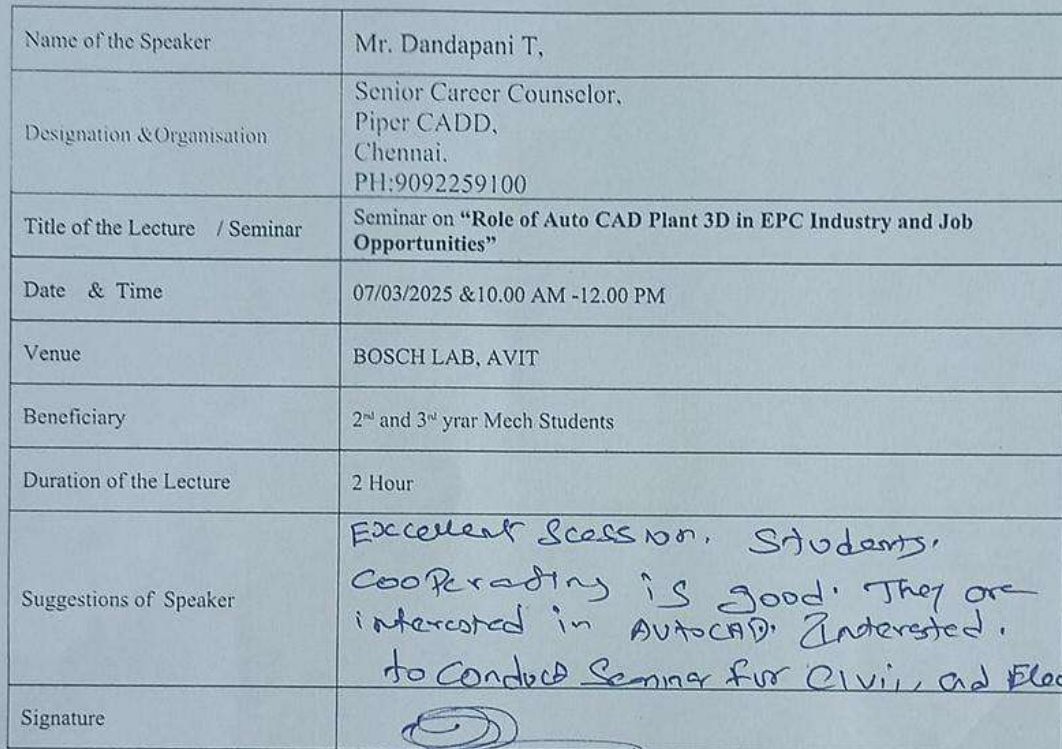 Name of the Speaker
Mr. Dandapani T,
Designation &Organisation
Senior Career Counselor,
Piper CADD,
Chennai.
PH:9092259100
Title of the Lecture / Seminar
Seminar on “Role of Auto CAD Plant 3D in EPC Industry and Job
Opportunities”
Date & Time
07/03/2025 &10.00 AM -12.00 PM
Venue
BOSCH LAB, AVIT
Beneficiary
2nd and 3rd yrar Mech Students
Duration of the Lecture
2 Hour
Suggestions of Speaker
Excellent Scession. Students.
Cooperating is good. They are
interested in AUTOCAD. Interested.
to Conduct Seminar for Civil, ad Elec
Signature